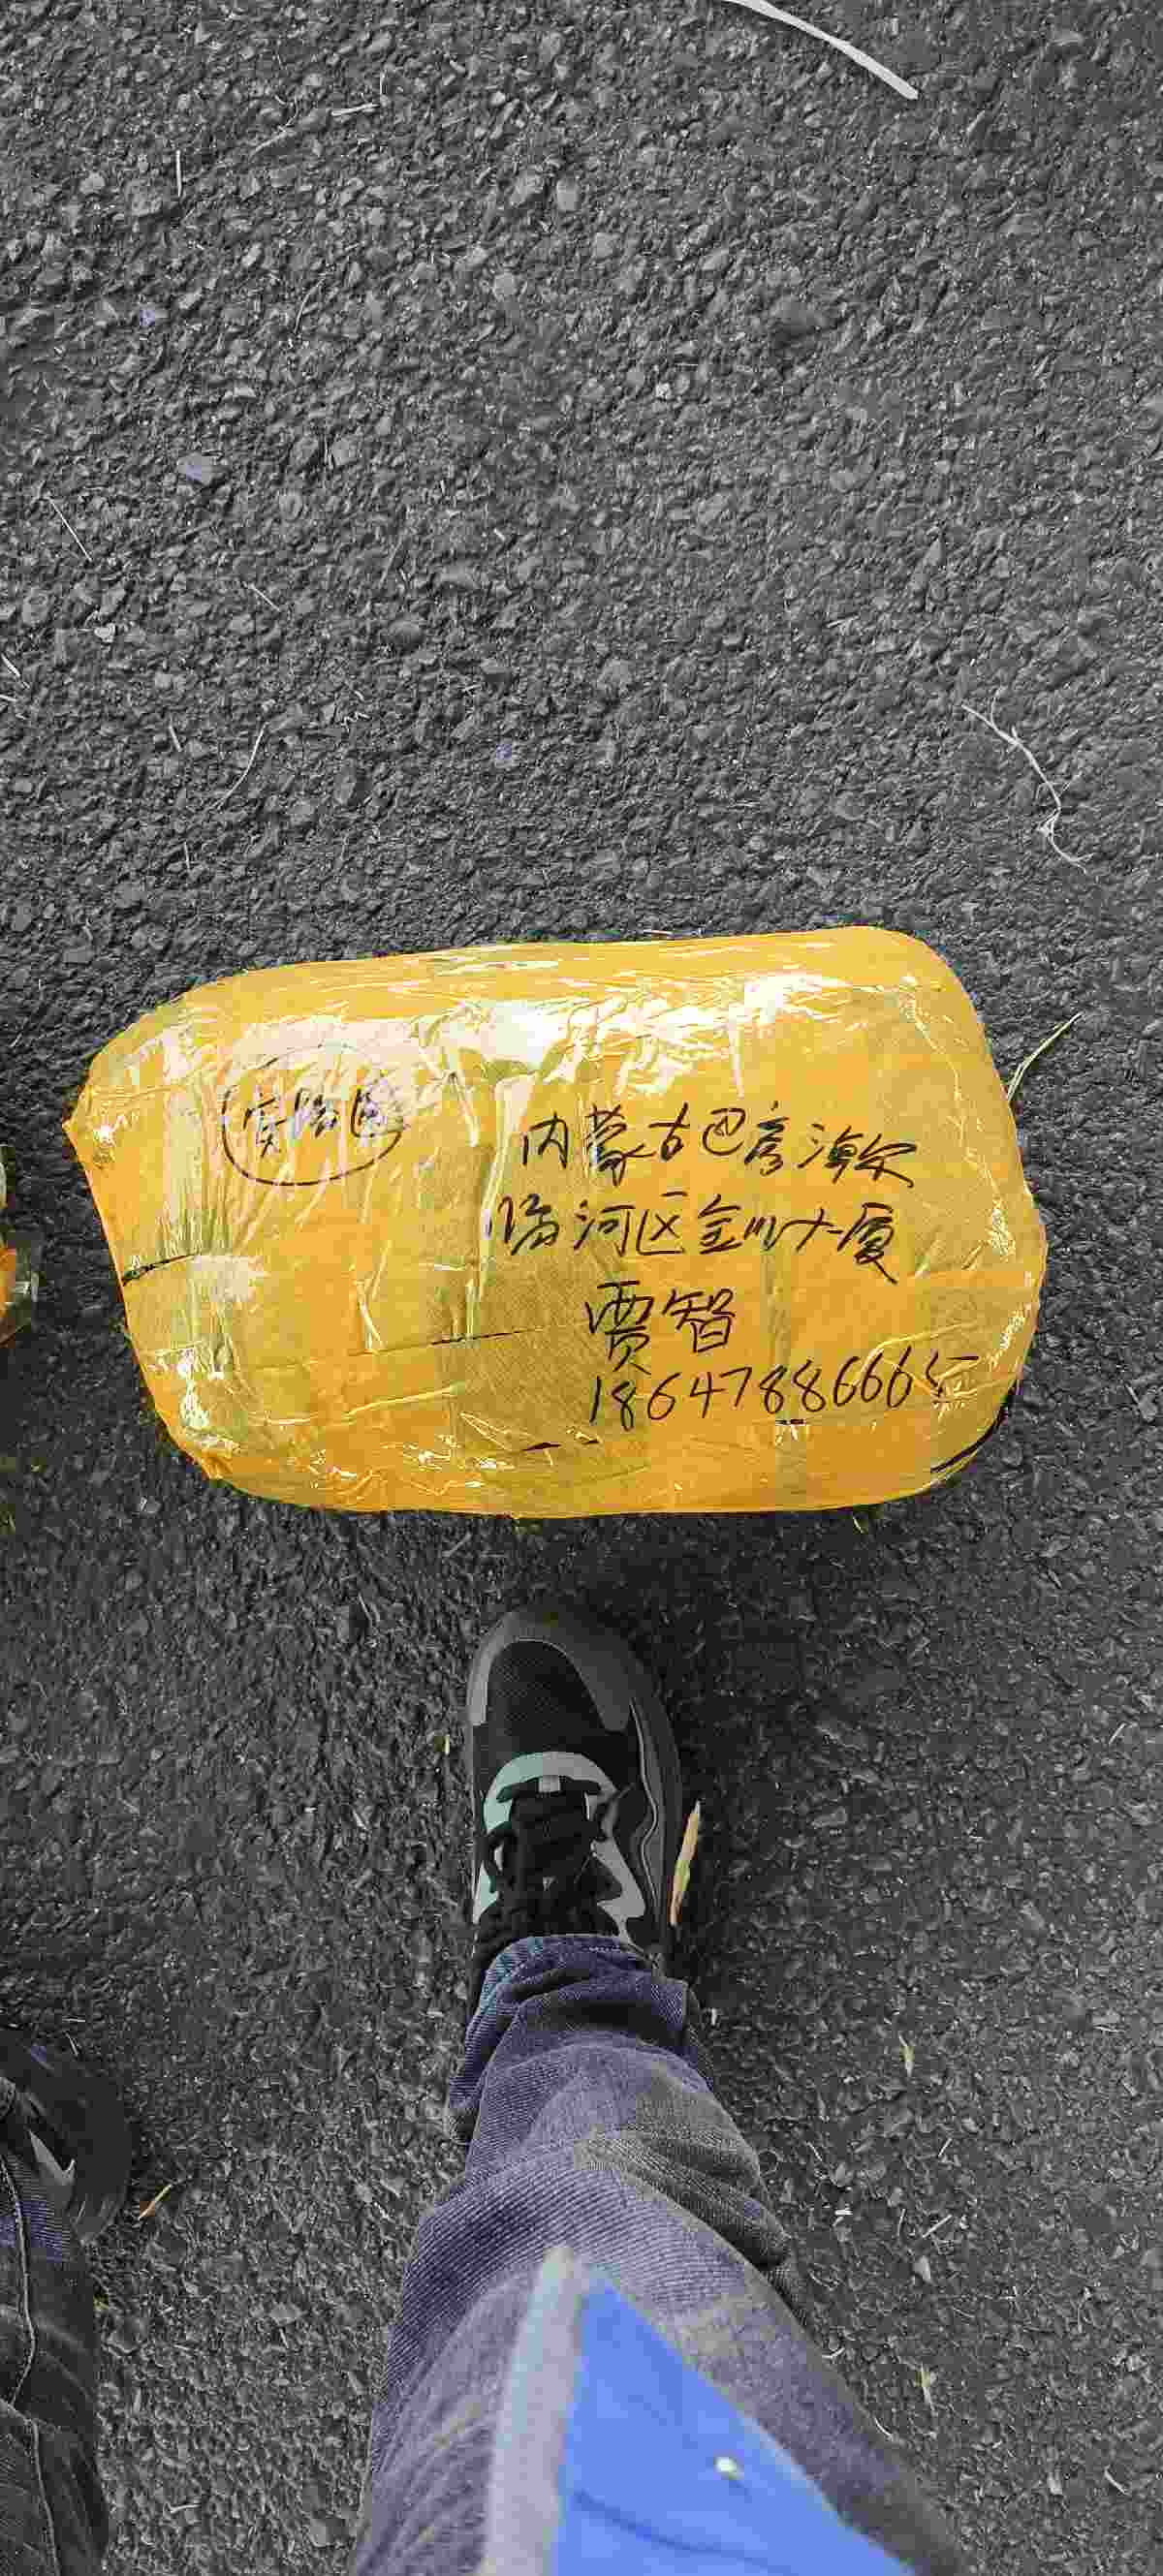 内蒙古巴彦淖尔
临河区金川大厦
贾智
18647886665